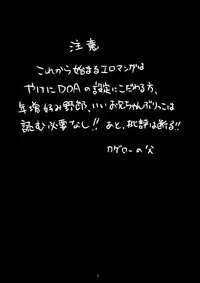 注意
これから始まるエロマンガは
やけにDOAの設定にこだわる方、
年増好み野郎、いいお兄ちゃんぶりっこは
読む必要なし!!あと、批評は断る!!
カゲローの父